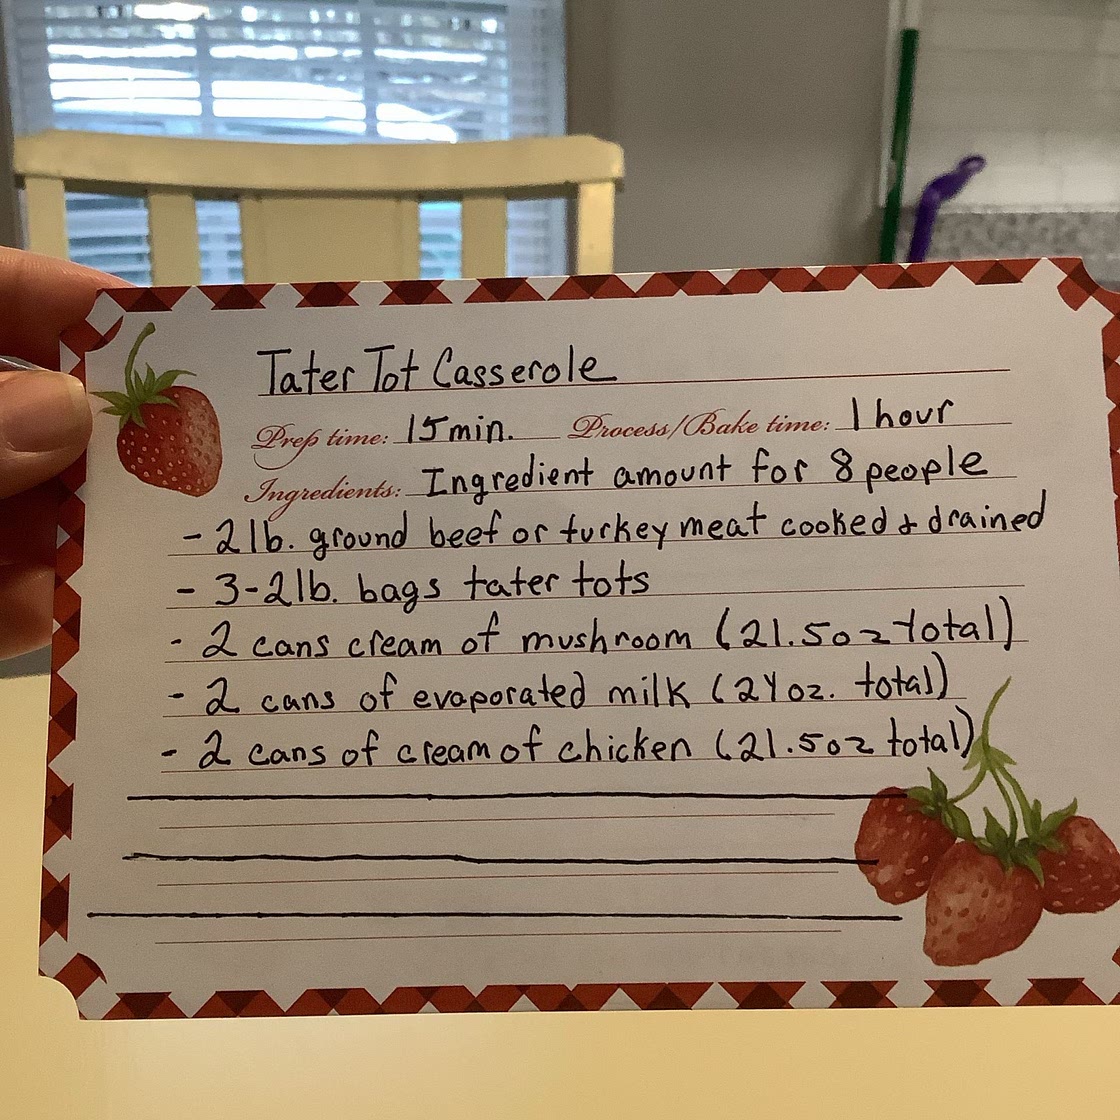 Tater Tot Casserole
Prep time: 15 min. Process/Bake time: 1 hour
Ingredients: Ingredient amount for 8 people
- 2 lb. ground beef or turkey meat cooked & drained
- 3-2 lb. bags tater tots
- 2 cans cream of mushroom (21.5oz total)
- 2 cans of evaporated milk (24oz. total)
- 2 cans of cream of chicken (21.5oz total)